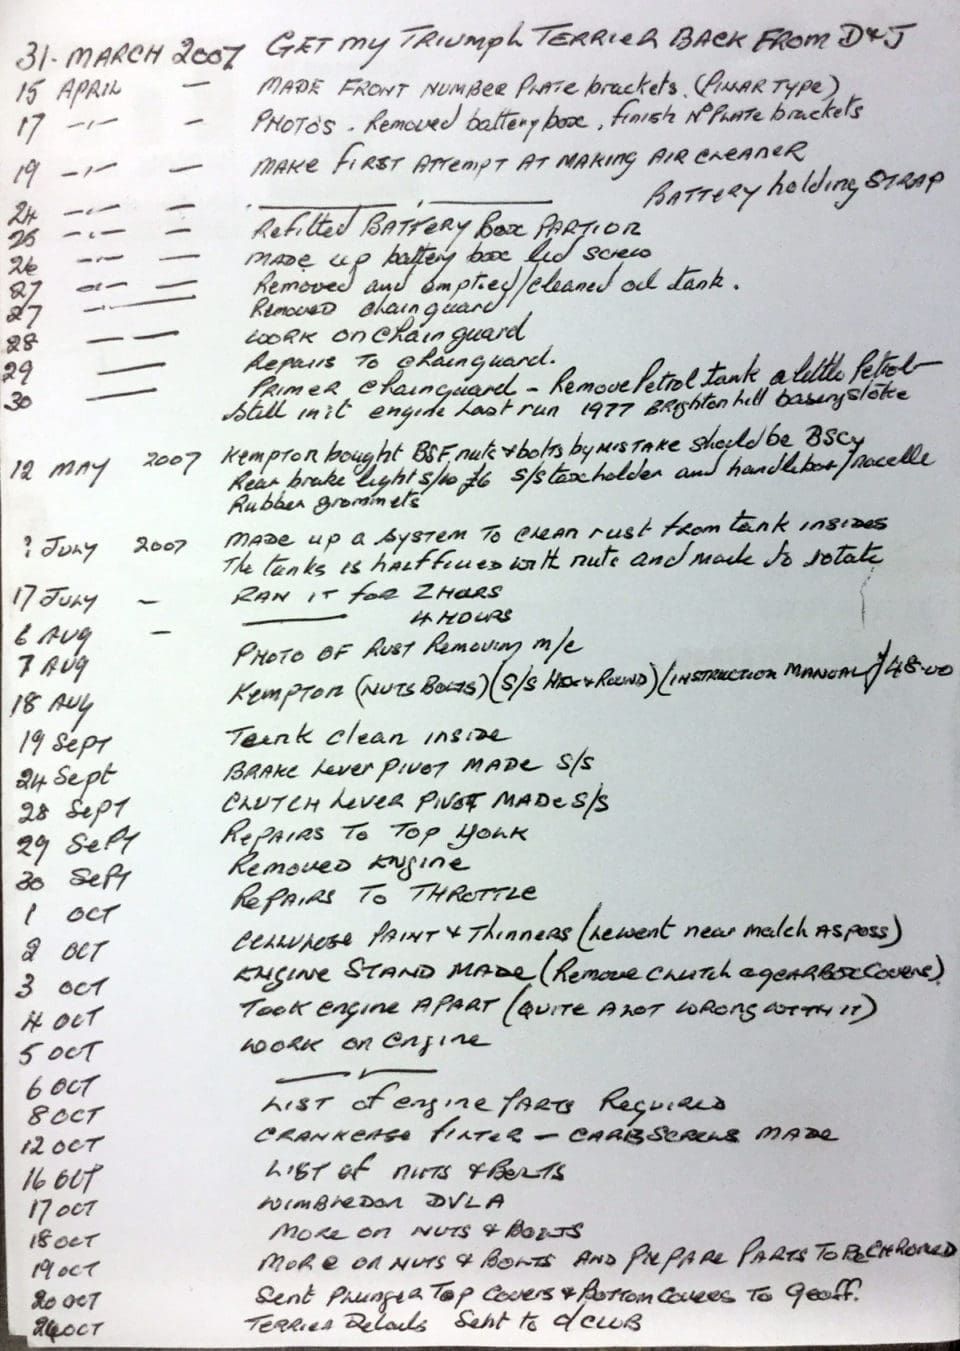 31. MARCH 2007 GET my TRIUMPH TERRIER BACK FROM D&J
15 APRIL — MADE FRONT NUMBER PLATE brackets. (PILLAR TYPE)
17 -"- — PHOTOS. Removed battery box, finish No PLATE brackets
19 -"- — MAKE FIRST ATTEMPT AT MAKING AIR CLEANER
BATTERY holding STRAP
24 -"- —
25 -"- — Refitted BATTERY Box PART FOR
26 -"- — MADE up battery box lid screw
27 -"- — Removed and emptied/cleaned oil tank.
27 -"- — REMOVED chainguard
28 — — WORK ON chainguard
29 — Repairs To chainguard.
30 — PRIMER chainguard - Remove Petrol tank a little Petrol
Still in it engine last run 1977 BRIGHTON hill basingstoke
12 MAY 2007 Kempton bought BSF, nuts & bolts by MISTAKE should be BSCy
Rear brake light S/W £6 S/S tax holder and handlebar/nacelle
Rubber grommets
? JULY 2007 MADE up a SYSTEM TO CLEAN rust from tank insides
The tanks is HALF FILLED with nuts and made to rotate
17 JULY — RAN IT for 2 HOURS
6 AUG — 4 HOURS
7 AUG PHOTO OF RUST Removing m/c
18 AUG Kempton (NUTS BOLTS) (S/S HEX & ROUND) (INSTRUCTION MANUAL) 48-00
19 Sept Tank clean inside
24 Sept BRAKE Lever PIVOT MADE S/S
28 SEPT CLUTCH Lever PIVOT MADE S/S
29 SEPT REPAIRS To Top YOLK
30 SEPT REMOVED ENGINE
1 OCT REPAIRS TO THROTTLE
2 OCT CELLULOSE PAINT & Thinners (newent near match AS POSS)
3 OCT ENGINE STAND MADE (Remove CLUTCH & GEARBOX Covers)
4 OCT TOOK engine APART (QUITE A LOT WRONG WITH IT)
5 OCT WORK on engine
6 OCT
8 OCT LIST of engine PARTS REQUIRED
12 OCT CRANKCASE FILTER — CARB SCREWS MADE
16 OCT LIST OF NUTS & BOLTS
17 OCT WIMBLEDON DVLA
18 OCT MORE ON NUTS & BOLTS
19 OCT MORE ON NUTS & BOLTS AND PREPARE PARTS TO BE CHROMED
20 OCT Sent Plunger Top Covers & Bottom Covers To Geoff.
24 OCT TERRIER Details Sent to O/CLUB